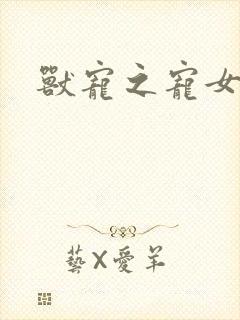 獸寵之寵女
藝X愛羊